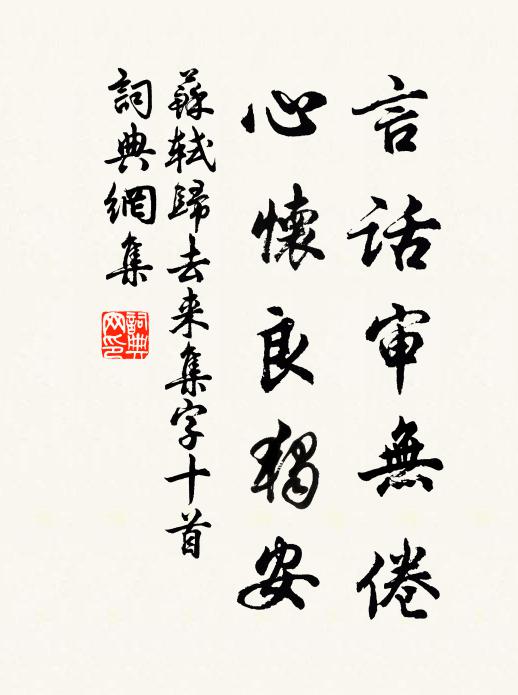 言話审無倦
心懷良獨安
蘇軾歸去来集字十首
詞典網集
詞典
网印